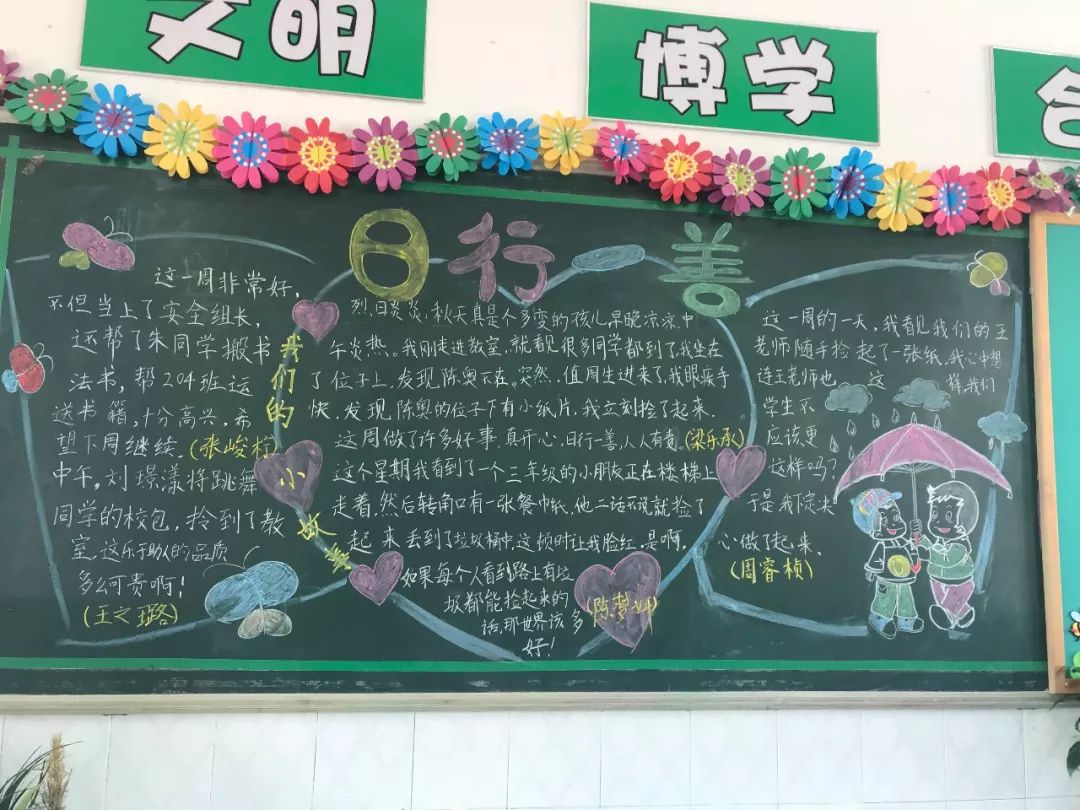 文明
博学
日行善
我们的小故事
这一周非常好，
不但当上了安全组长，
还帮了朱同学搬书
法书，帮204班运
送书籍，十分高兴，希
望下周继续。(张峻柠)
中午，刘璟漾将跳舞
同学的校包，拎到了教
室，这乐于助人的品质
多么可贵啊！
(王之璐)
烈日炎炎，秋天真是个多变的孩儿早晚凉凉，中
午炎热。我刚走进教室，就看见很多同学都到了，我坐在
了位子上，发现陈奥不在。突然，值周生进来了，我眼疾手
快，发现陈奥的位子下有小纸片，我立刻捡了起来。
这周做了许多好事，真开心，日行一善，人人有责。(梁乐承)
这个星期我看到了一个三年级的小朋友正在楼梯上
走着，然后转角口有一张餐巾纸，他二话不说就捡了
起来丢到了垃圾桶中，这顿时让我脸红，是啊，
如果每个人看到路上有垃
圾都能捡起来的
话，那世界该多
好！
(陈梦
这一周的一天，我看见我们的王
老师随手捡起了一张纸，我心中想
连王老师也这样，我们
学生不
应该更
这样吗？
于是我下定决
心做了起来。
(周睿桢)